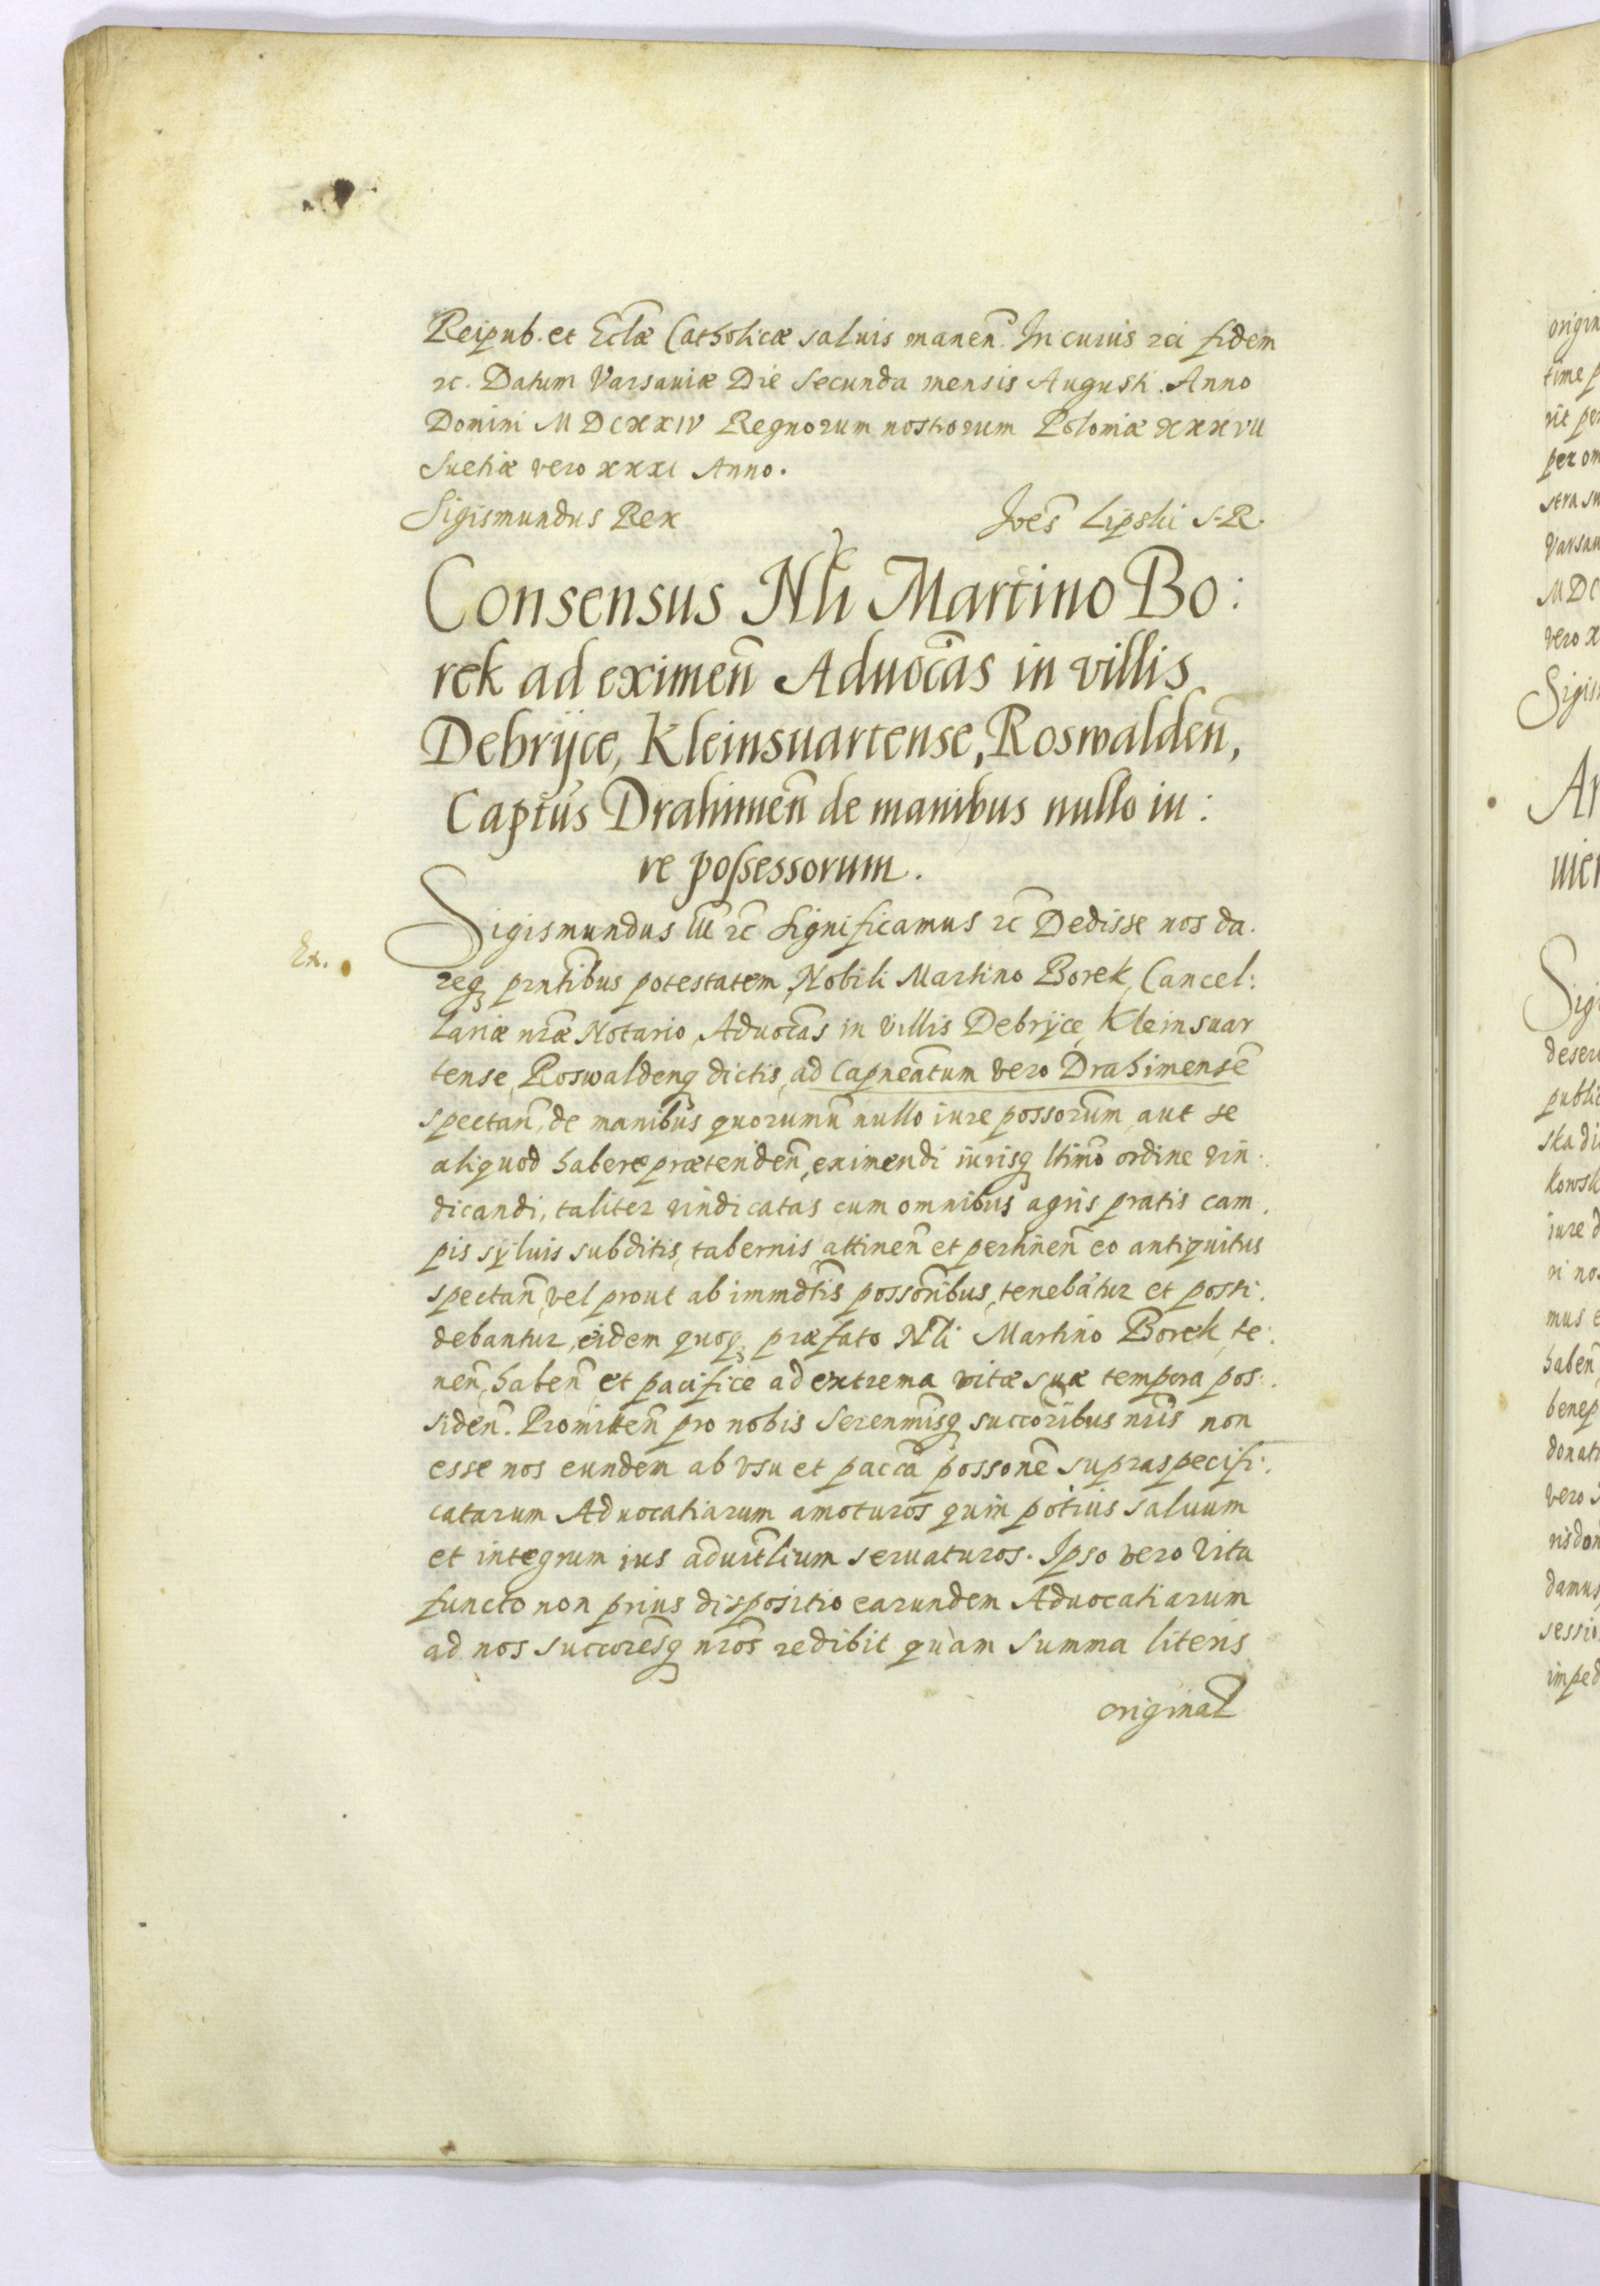 Reipub. et Eclæ Catholicæ saluis manen̄. In cuius rei fidem
ꝛc. Datum Varsauiæ Die Secunda mensis Augusti. Anno
Domini MDCXXIV Regnorum nostrorum Poloniæ XXXVII
Suetiæ vero XXXI Anno.
Sigismundus Rex Joēs Lipski S. R.
Consensus Nli Martino Bo:
rek ad eximen̄ Aduocās in villis
Debrijce, Kleinsuartense, Roswalden̄,
Captūs Drahimen̄ de manibus nullo iu:
re possessorum.
Sigismundus III ꝛc Significamus ꝛc Dedisse nos da.
Ex.
reqꝫ prn̄tibus potestatem, Nobili Martino Borek, Cancel:
lariæ nr̄æ Notario, Aduocās in villis Debrijce, Kleinsuar
tense, Roswaldenqꝫ dictis, ad Capneātum vero Drahimensē
spectan̄, de manibus quorumūn nullo iure possorūm, aut se
aliquod habere prætenden̄, eximendi iurisqꝫ ltimō ordine vin.
dicandi, taliter vindicatas cum omnibus agris pratis cam.
pis syluis subditis, tabernis attinen̄ et pertinen̄ eo antiquitus
spectan̄, vel prout ab immdtīs possorībus, tenebātur et possi.
debantur, eidem quoqꝫ præfato Nli Martino Borek, te:
nen̄, haben̄ et pacifice ad extrema vitæ suæ tempora pos:
siden̄. Promitten̄ pro nobis Serenmīsqꝫ succorībus nrīs non
esse nos eundem ab vsu et paccā possonē supraspecifi.
catarum Aduocatiarum amoturos quin potius saluum
et integrum ius aduitlīum seruaturos. Ipso vero vita
functo non prius dispositio earundem Aduocatiarum
ad nos succorēsqꝫ nrōs redibit quàm summa literis
original